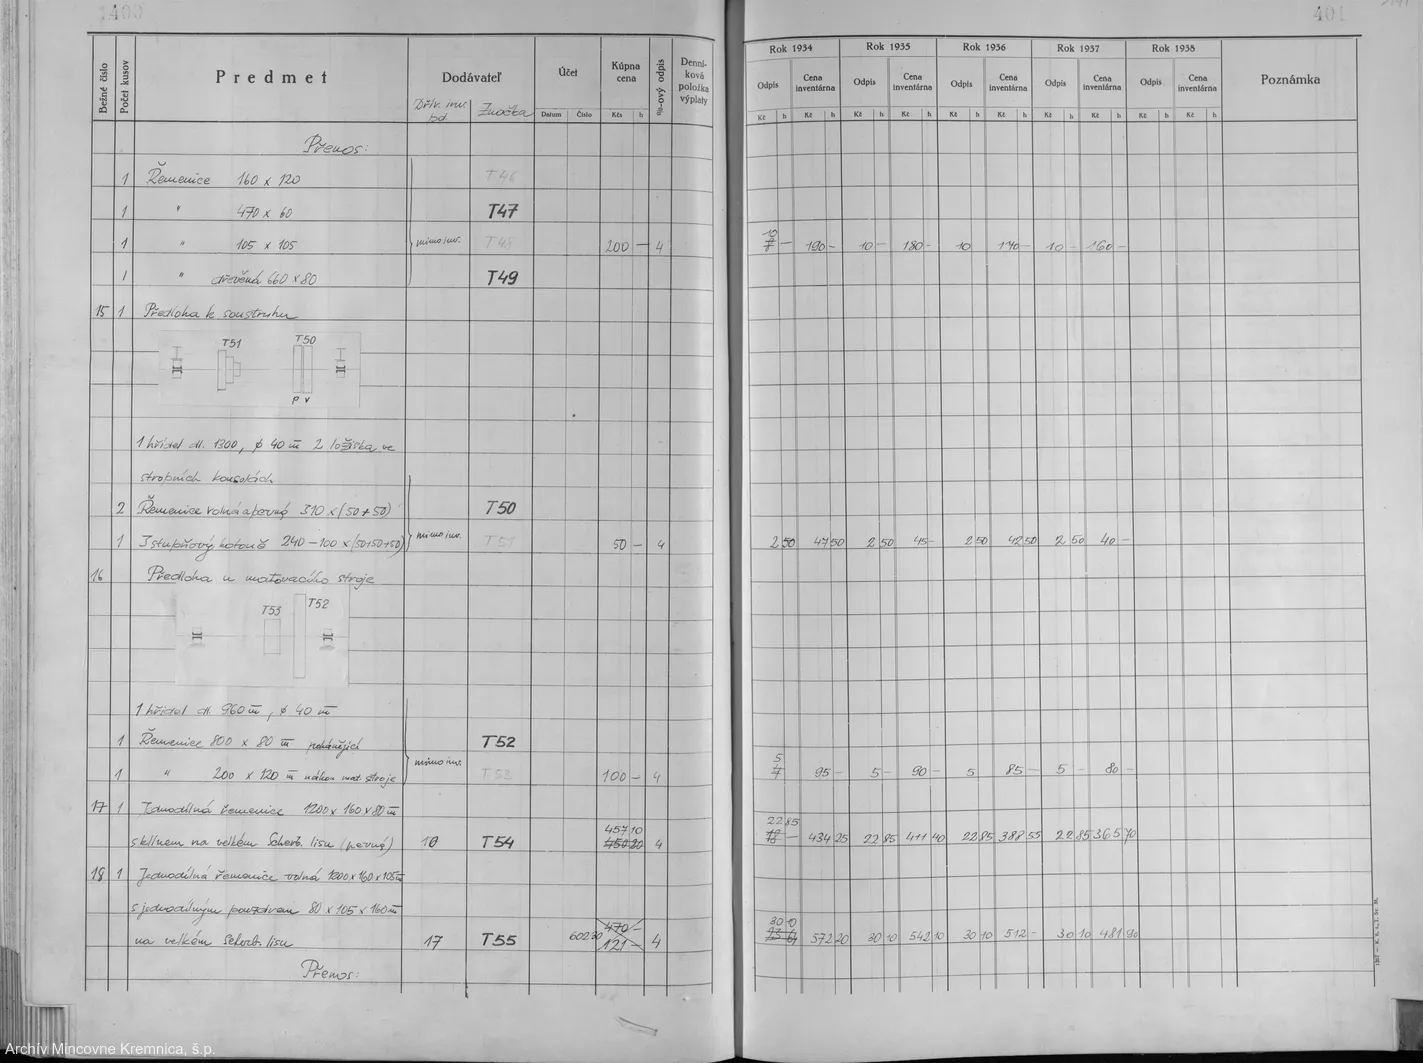 1400
401
Bežné číslo Počet kusov Predmet Dodávateľ Účet Kúpna cena %-ový odpis Denníková položka výplaty
Dřív. inv. Značka Datum Číslo Kčs h
Rok 1934 Rok 1935 Rok 1936 Rok 1937 Rok 1938 Poznámka
Odpis Cena inventárna Odpis Cena inventárna Odpis Cena inventárna Odpis Cena inventárna Odpis Cena inventárna
Kč h Kč h Kč h Kč h Kč h Kč h Kč h Kč h Kč h Kč h
Přenos:
1 Řemenice 160 x 120 T46
1 " 470 x 60 T47
10
1 " 105 x 105 mimo inv. T48 200 — 4 7 — 190 - 10 - 180 - 10 170 - 10 - 160 -
1 " dřevěná 660 x 80 T49
15 1 Předloha k soustruhu
T51 T50
P V
1 hřídel dl. 1300, ø 40 m 2 ložiska ve
stropních konsolách
2 Řemenice volná a pevná 310 x (50+50) T50
1 3stupňový kotouč 240-100 x (50+50+50) mimo inv. T51 50 - 4 2 50 47 50 2 50 45 - 2 50 42 50 2 50 40 -
16 Předloha u maťovacího stroje
T53 T52
1 hřídel dl. 960 m, ø 40 m
1 Řemenice 800 x 80 m T52
mimo inv.
5
1 " 200 x 120 m náhon mat. stroje T53 100 - 4 4 95 - 5 - 90 - 5 85 - 5 - 80 -
17 1 Jednodílná řemenice 1200 x 160 x 80 m
457 10 22 85
s klínem na velkém Scherb. lisu (pevná) 10 T54 450 20 4 18 — 434 25 22 85 411 40 22 85 388 55 22 85 365 70
18 1 Jednodílná řemenice volná 1200 x 160 x 105 m
s jednodílným pouzdrem 80 x 105 x 160 m
470- 30 0
na velkém Scherb. lisu 17 T55 602 30 121 - 4 572 20 30 10 542 10 30 10 512 - 30 10 481 90
Přenos:
Archív Mincovne Kremnica, š.p.